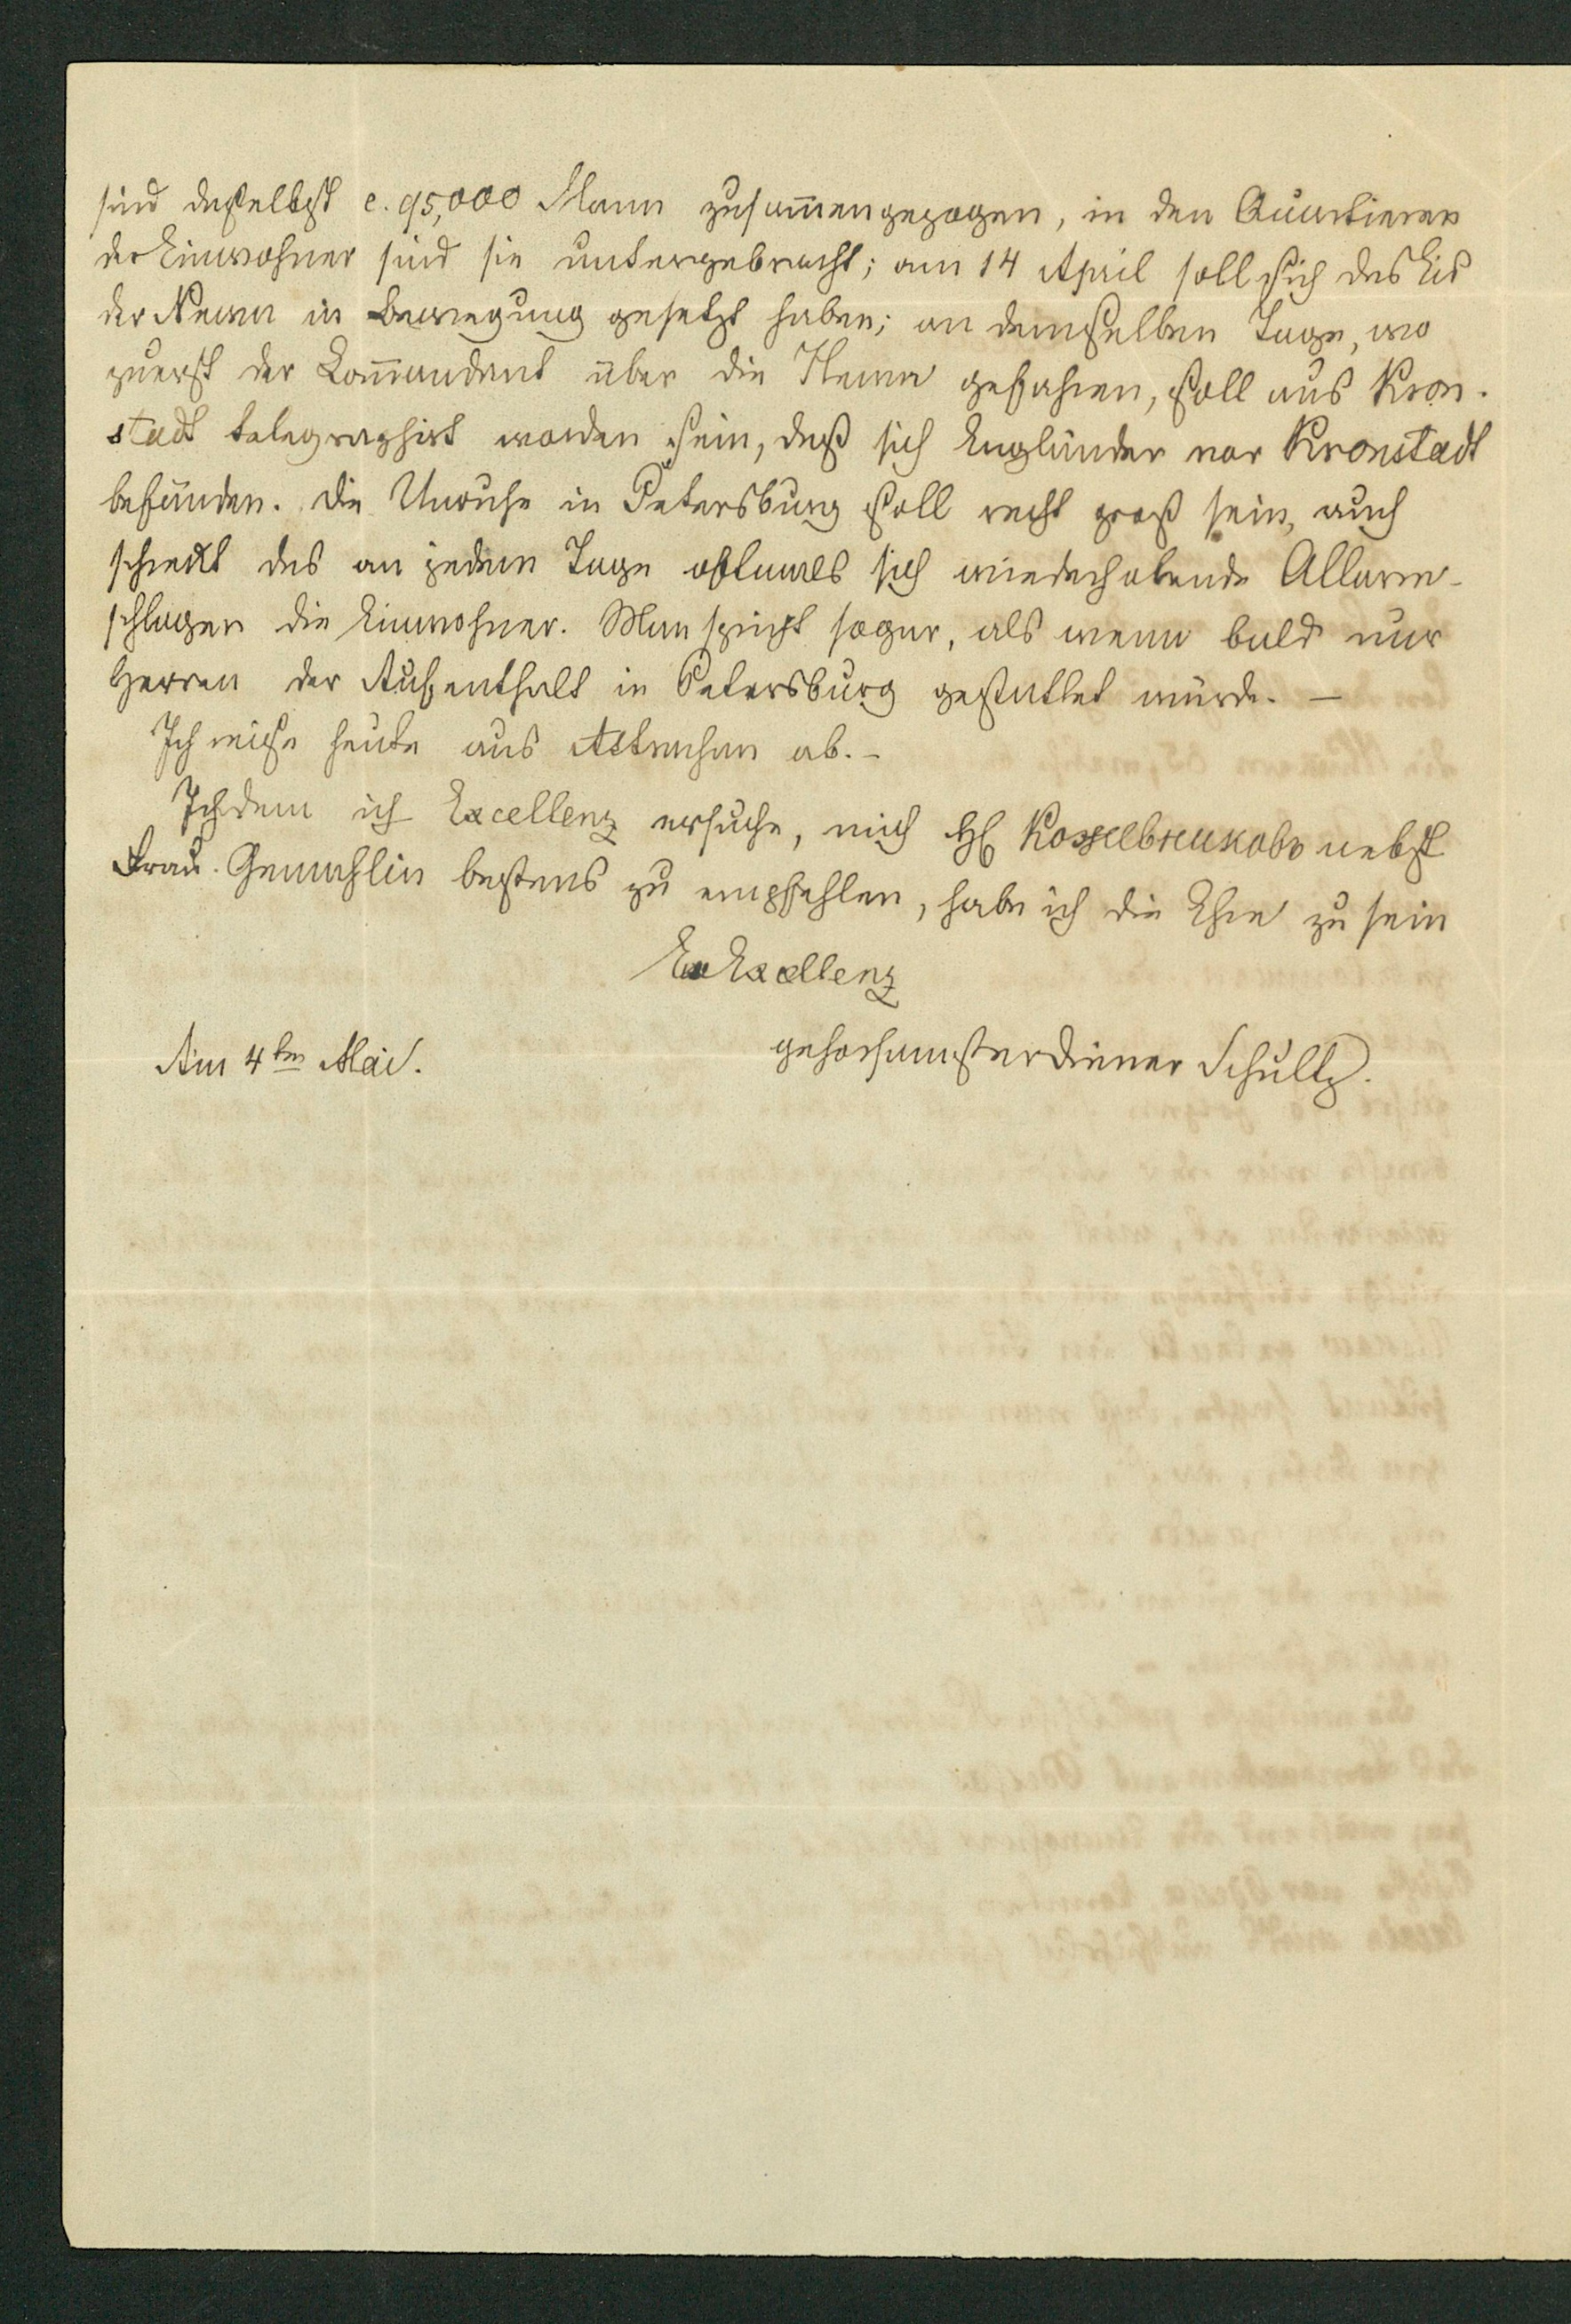 sind daselbst c. 95,000 Mann zusam̅engezogen, in den Quartieren
der Einwohner sind sie untergebracht; am 14 April soll sich das Eis
der Newa in Bewegung gesetzt haben; an demselben Tage, wo
zuerst der Com̅andant über die Newa gefahren, soll aus Kron-
stadt telegraphirt worden sein, daß sich Engländer vor Kronstadt
befänden. Die Unruhe in Petersburg soll recht groß sein, auch
schreckt das an jedem Tage oftmals sich wiederholende Allarm-
schlagen die Einwohner. Man spricht sogar, als wenn bald nur
Herren der Aufenthalt in Petersburg gestattet würde. —
Ich reise heute aus Astrachan ab. –
Indem ich Excellenz ersuche, mich H. Кожевниковъ nebst
Frau Gemahlin bestens zu empfehlen, habe ich die Ehre zu sein
Ew Excellenz
Am 4ten Mai.
gehorsamster Diener Schultz.